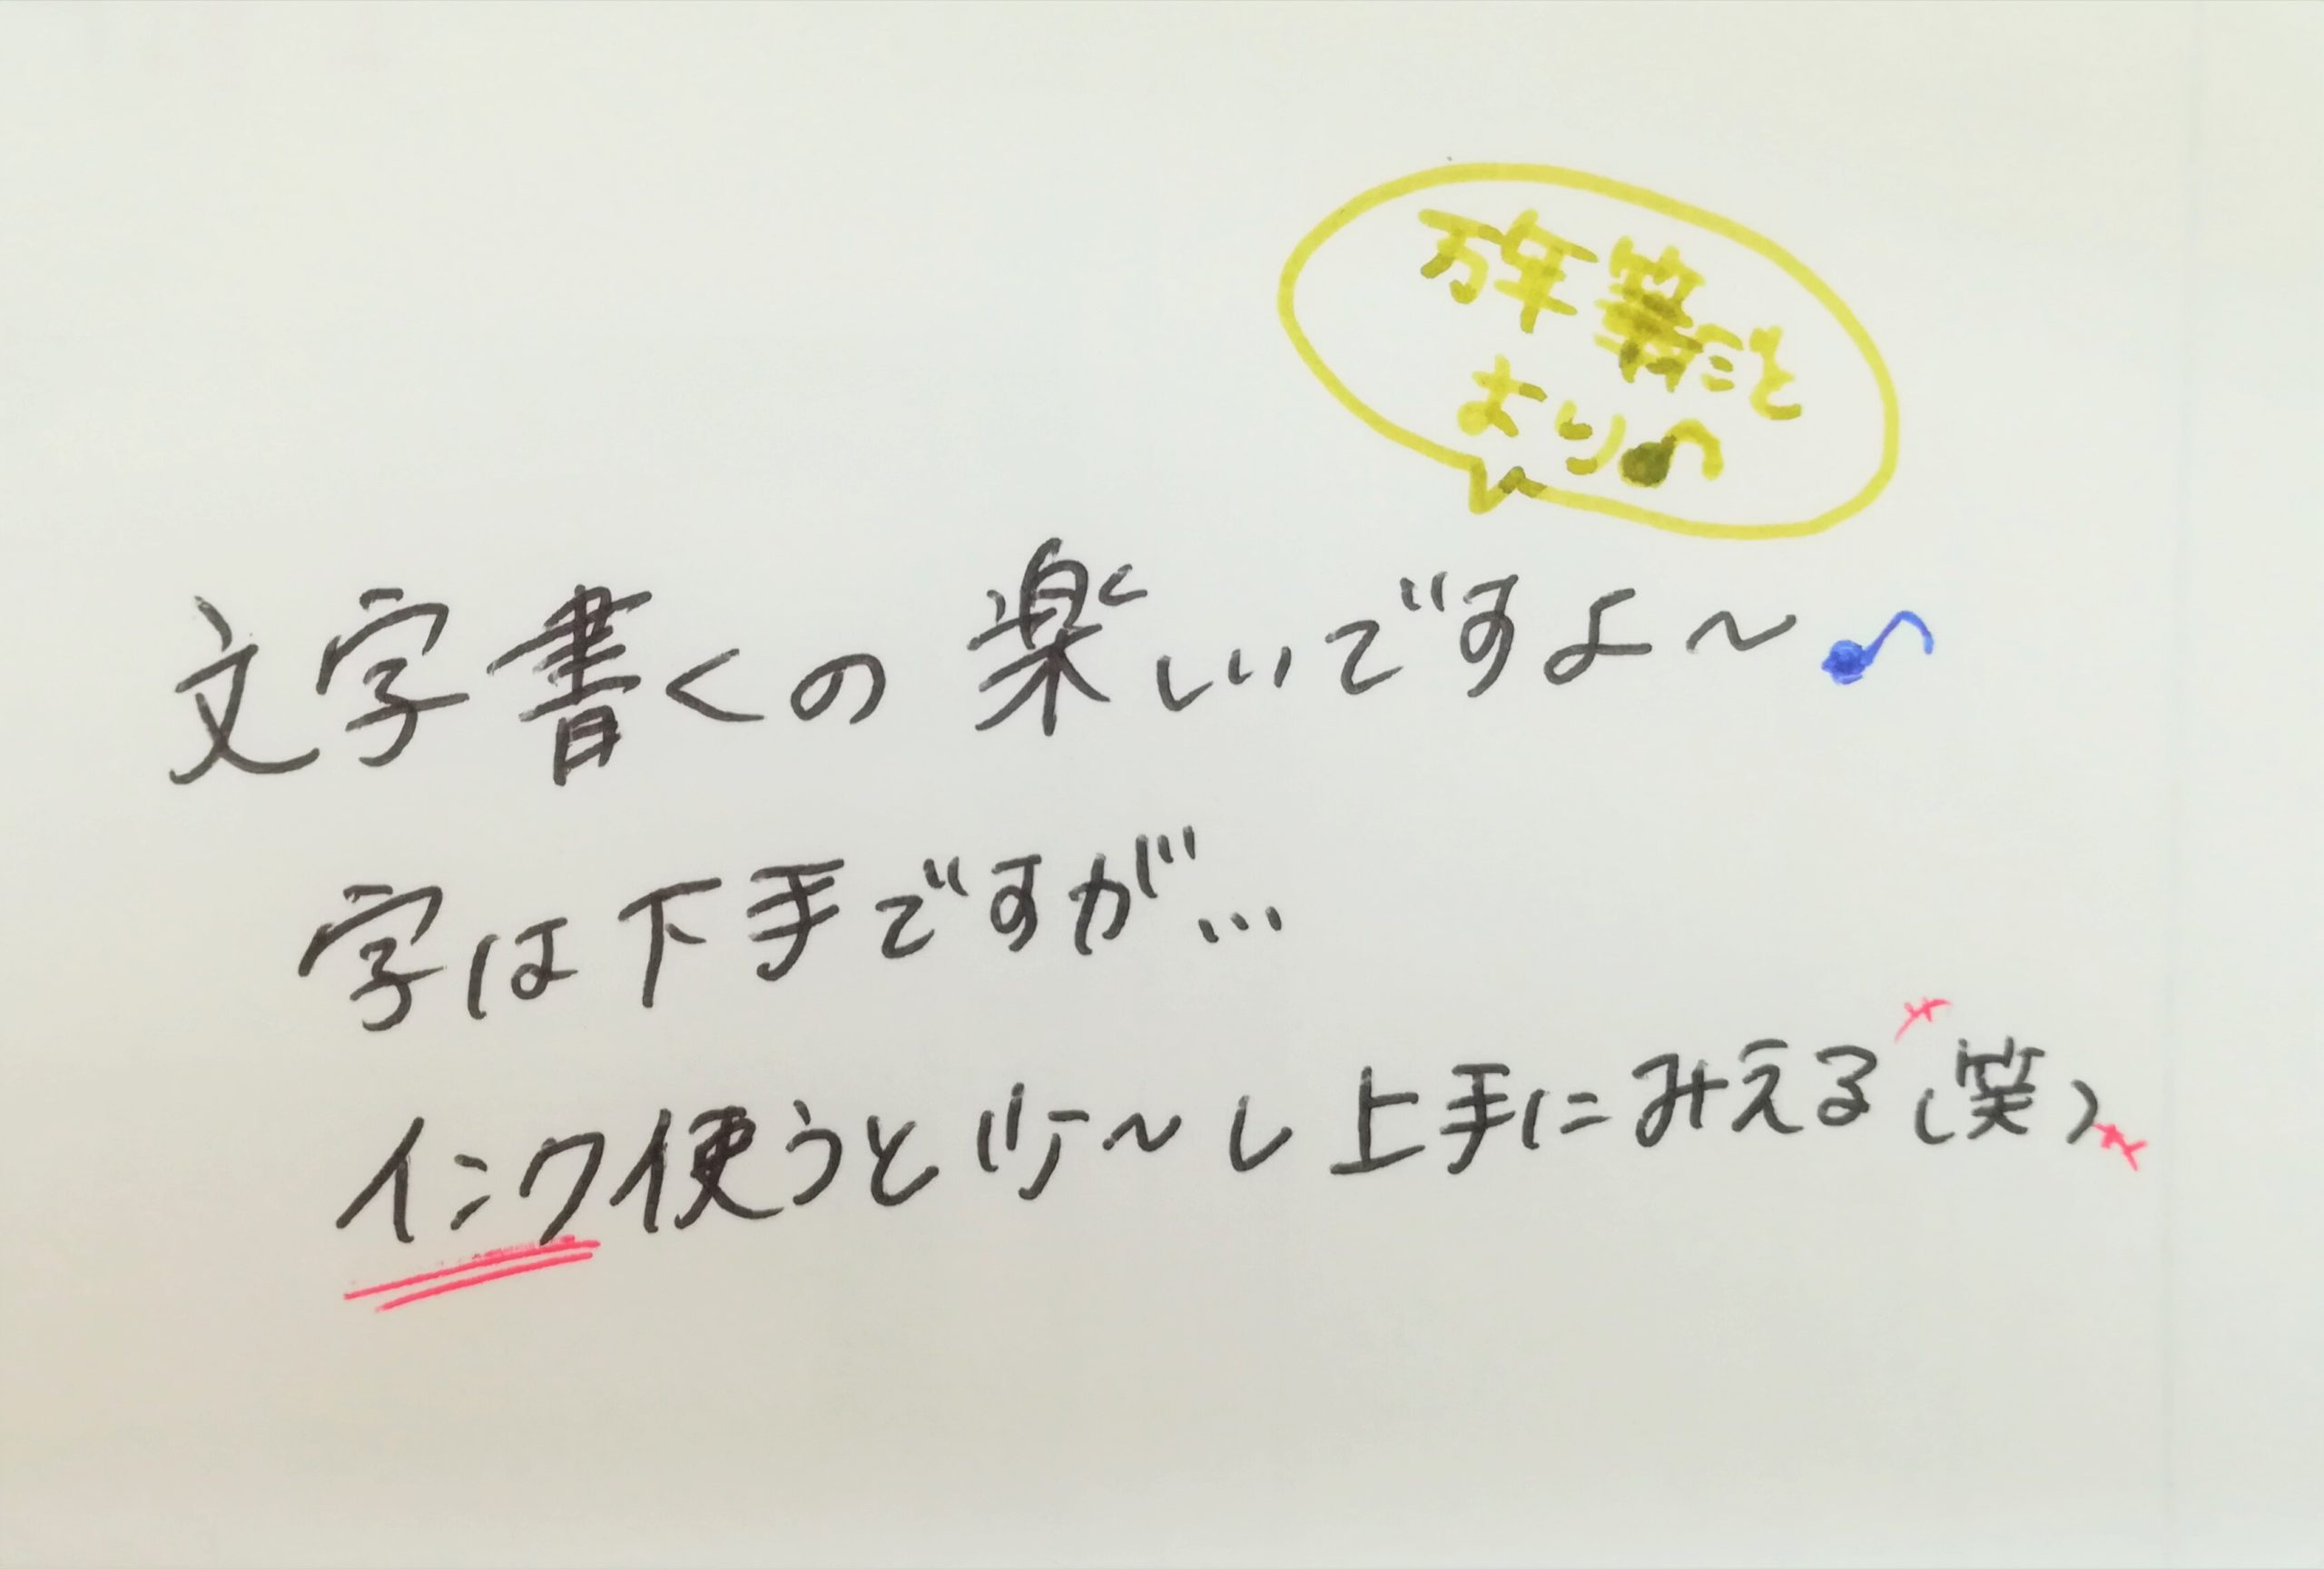 万年筆こそ
より♪
文字書くの楽しいですよ～♪
字は下手ですが…
インク使うと少～し上手にみえる(笑)